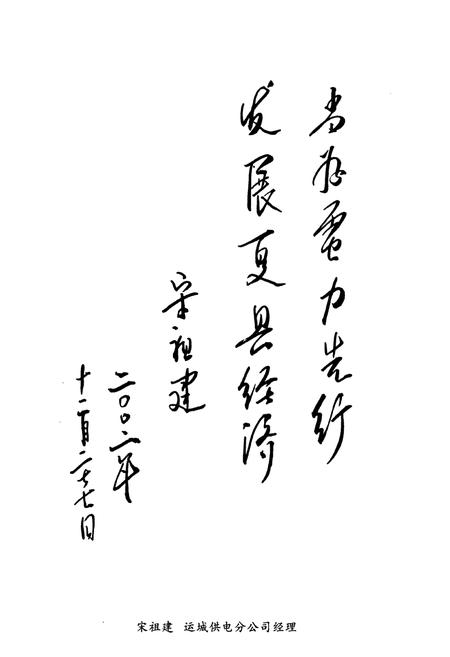 当好電力先行
发展夏县经济
宋祖建
二〇〇二年
十二月二十七日
宋祖建 运城供电分公司经理